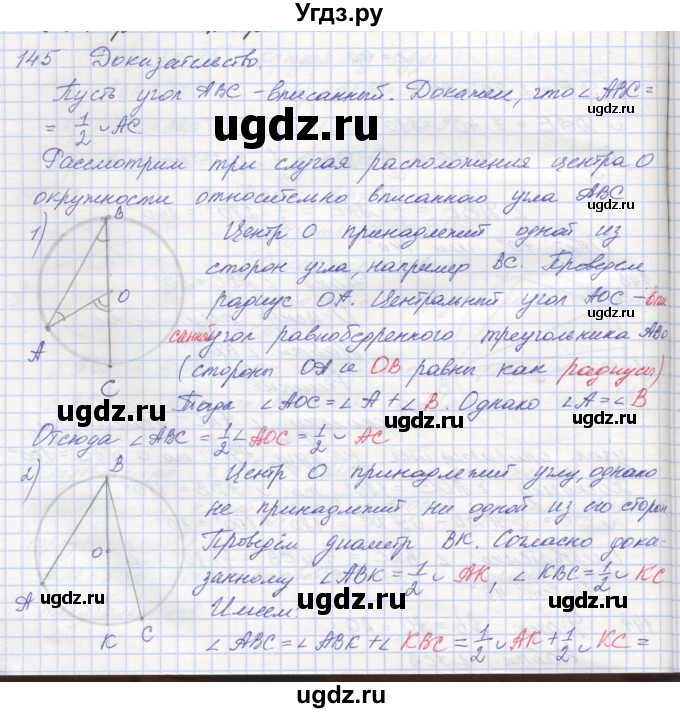 Угдз.ру
145 Доказательство
Пусть угол ABC - вписанный. Докажем, что ∠ABC =
= 1/2 ∪ AC
ugdz.ru
ugdz.ru
Рассмотрим три случая расположения центра O
окружности относительно вписанного угла ABC
ugdz.ru
1)
B
Центр O принадлежит одной из
сторон угла, например BC. Проведем
ugdz.ru
O
радиус OA. Центральный угол AOC - впи
санный угол равнобедренного треугольника ABO
ugdz.ru
A
(стороны OA и OB равны как радиусы)
C
Тогда ∠AOC = ∠A + ∠B. Однако ∠A = ∠B
ugdz.ru
ugdz.ru
Отсюда ∠ABC = 1/2 ∠AOC = 1/2 ∪ AC
2)
B
Центр O принадлежит углу, однако
не принадлежит ни одной из его сторон
ugdz.ru
O
Проведём диаметр BK. Согласно дока-
занному ∠ABK = 1/2 ∪ AK, ∠KBC = 1/2 ∪ KC
A
ugdz.ru
ugdz.ru
ugdz.ru
Имеем:
K
C
∠ABC = ∠ABK + ∠KBC = 1/2 ∪ AK + 1/2 ∪ KC =
ugdz.ru
ugdz.ru